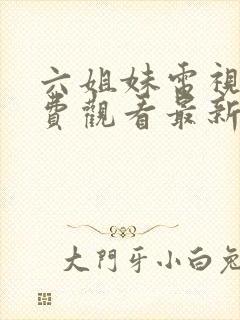 六姐妹電視
費觀看最新
大門牙小白兔